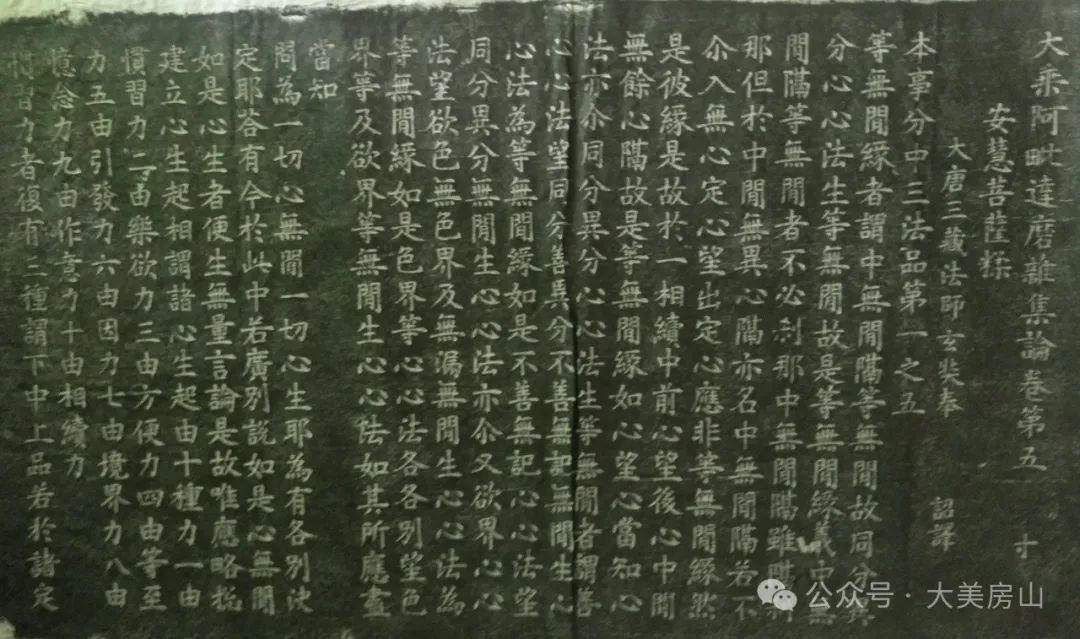 大乘阿毗達磨雜集論卷第五 十
安慧菩薩糅
大唐三藏法師玄奘奉 詔譯
本事分中三法品第一之五
等無間緣者謂中無間隔等無間故同分異
分心心法生等無間故是等無間緣義中無
間隔等無間者不必剎那中無間隔雖隔剎
那但於中間無異心隔亦名中無間隔若不
尒入無心定心望出定心應非等無間緣然
是彼緣是故於一相續中前心望後心中間
無餘心隔故是等無間緣如心望心當知心
法亦尒同分異分心心法生等無間者謂善
心心法望同分善異分不善無記無間生心
心法為等無間緣如是不善無記心心法望
同分異分無間生心心法亦尒又欲界心心
法望欲色無色界及無漏無間生心心法為
等無間緣如是色界等心心法各各別望色
界等及欲界等無間生心心法如其所應盡
當知
問為一切心無間一切心生耶為有各別決
定耶答有今於此中若廣別說如是心無間
如是心生者便生無量言論是故唯應略說
建立心生起相謂諸心生起由十種力一由
慣習力二由樂欲力三由方便力四由等至
力五由引發力六由因力七由境界力八由
憶念力九由作意力十由相續力
慣習力者復有三種謂下中上品若於諸定
公众号·大美房山